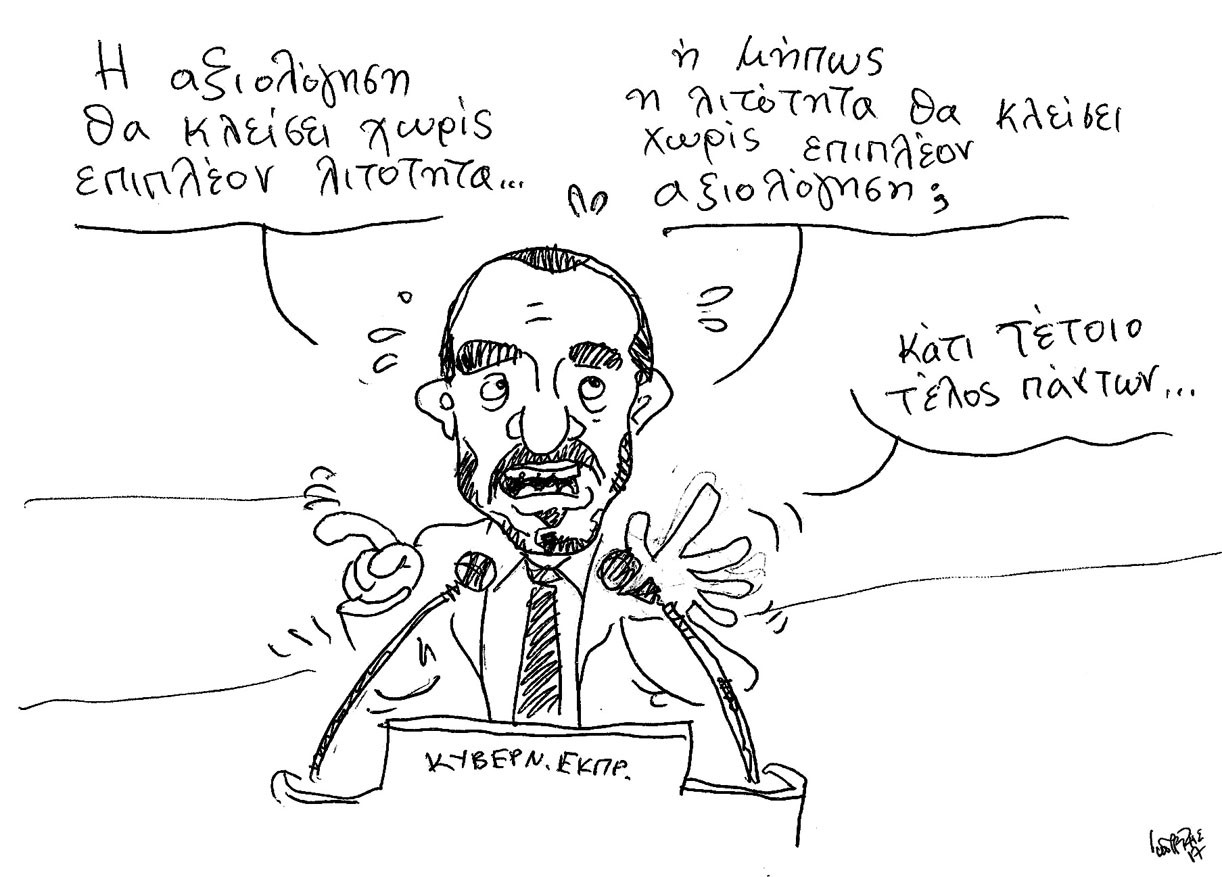 Η αξιολόγηση
θα κλείσει χωρίς
επιπλέον λιτότητα...
ή μήπως
η λιτότητα θα κλείσει
χωρίς επιπλέον
αξιολόγηση;
κάτι τέτοιο
τέλος πάντων...
ΚΥΒΕΡΝ. ΕΚΠΡ.
17